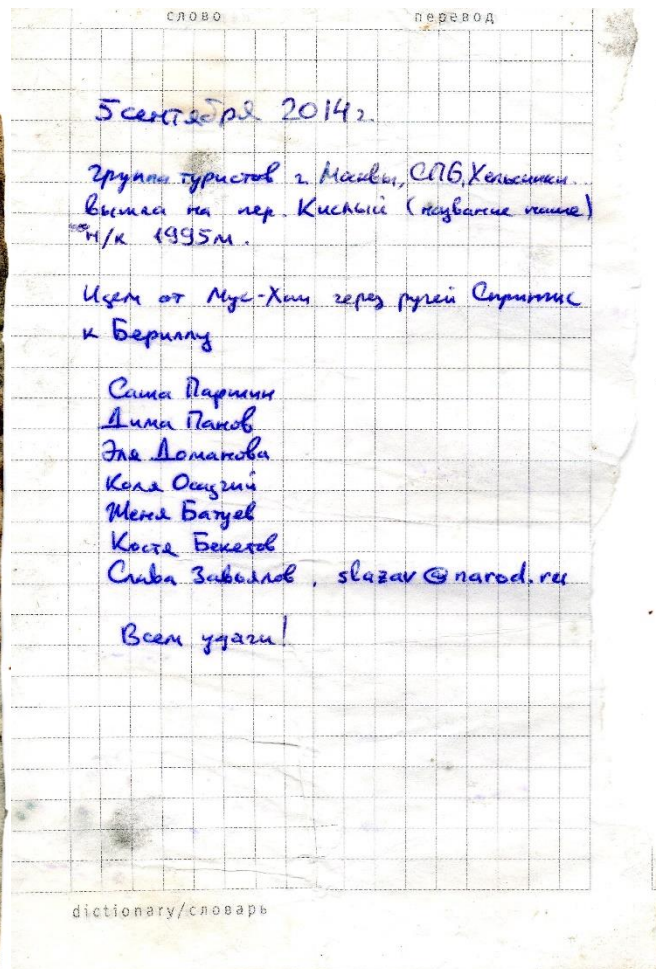 слово перевод
5 сентября 2014 г.
Группа туристов г. Москвы, СПб, Хельсинки
вышла на пер. Кислый (название наше)
н/к 1995м.
Идем от Мус-Хаи через ручей Спрингис
к Бериллу
Саша Паршин
Дима Панов
Эля Доманова
Коля
Женя Батуев
Костя Бекетов
Слава Завьялов, slazav@narod.ru
Всем удачи!
dictionary/словарь